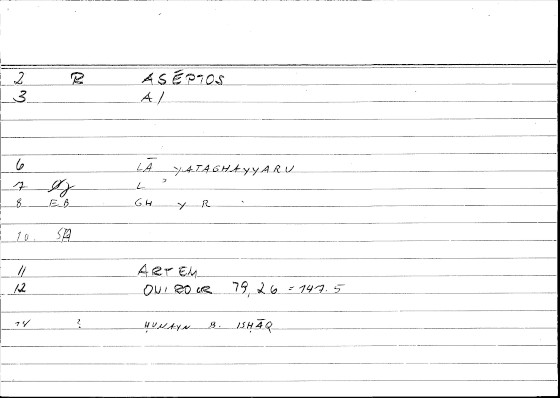 2 R ASĒPTOS
3 A1
6 LĀ YATAGHAYYARU
7 L
8 EB GH Y R
10. SA
11 ARTEM
12 ONIROCR 79,26 = 147.5
14 ? ḤUNAYN B. ISḤĀQ